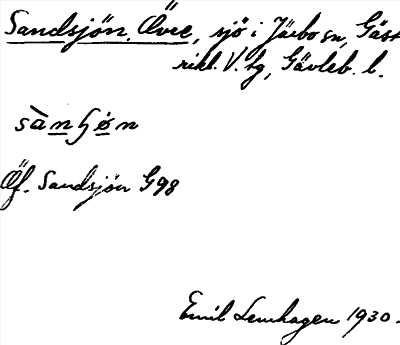 Sandsjön, Övre, sjö i Järbo sn, Gäst
rikl. V. tg, Gävleb. l.
sànꞕøn
Öf. Sandsjön G98
Emil Lemhagen 1930.